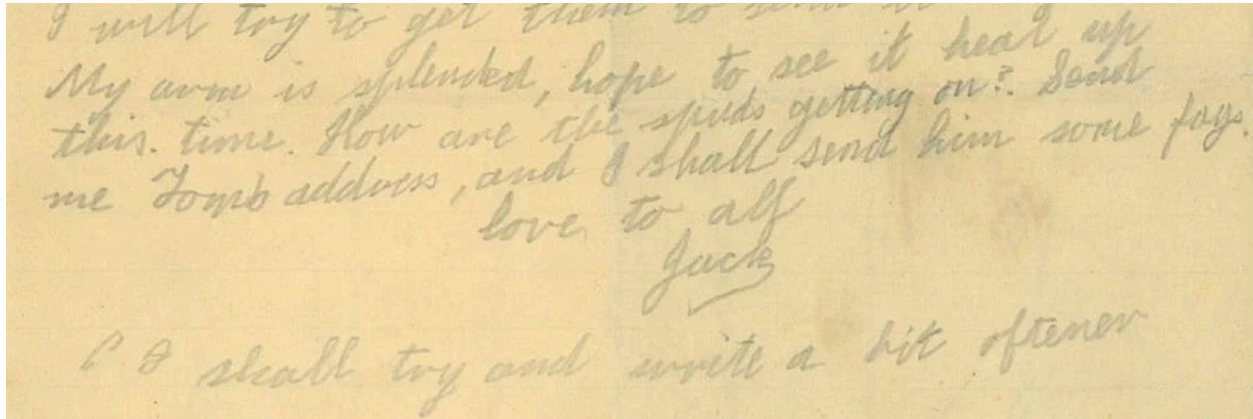 I will try to get them to send it
My arm is splended, hope to see it heal up
this. time. How are the spuds getting on?. Send
me address, and I shall send him some fags.
love to alf
Jack
P S shall try and write a bit oftener